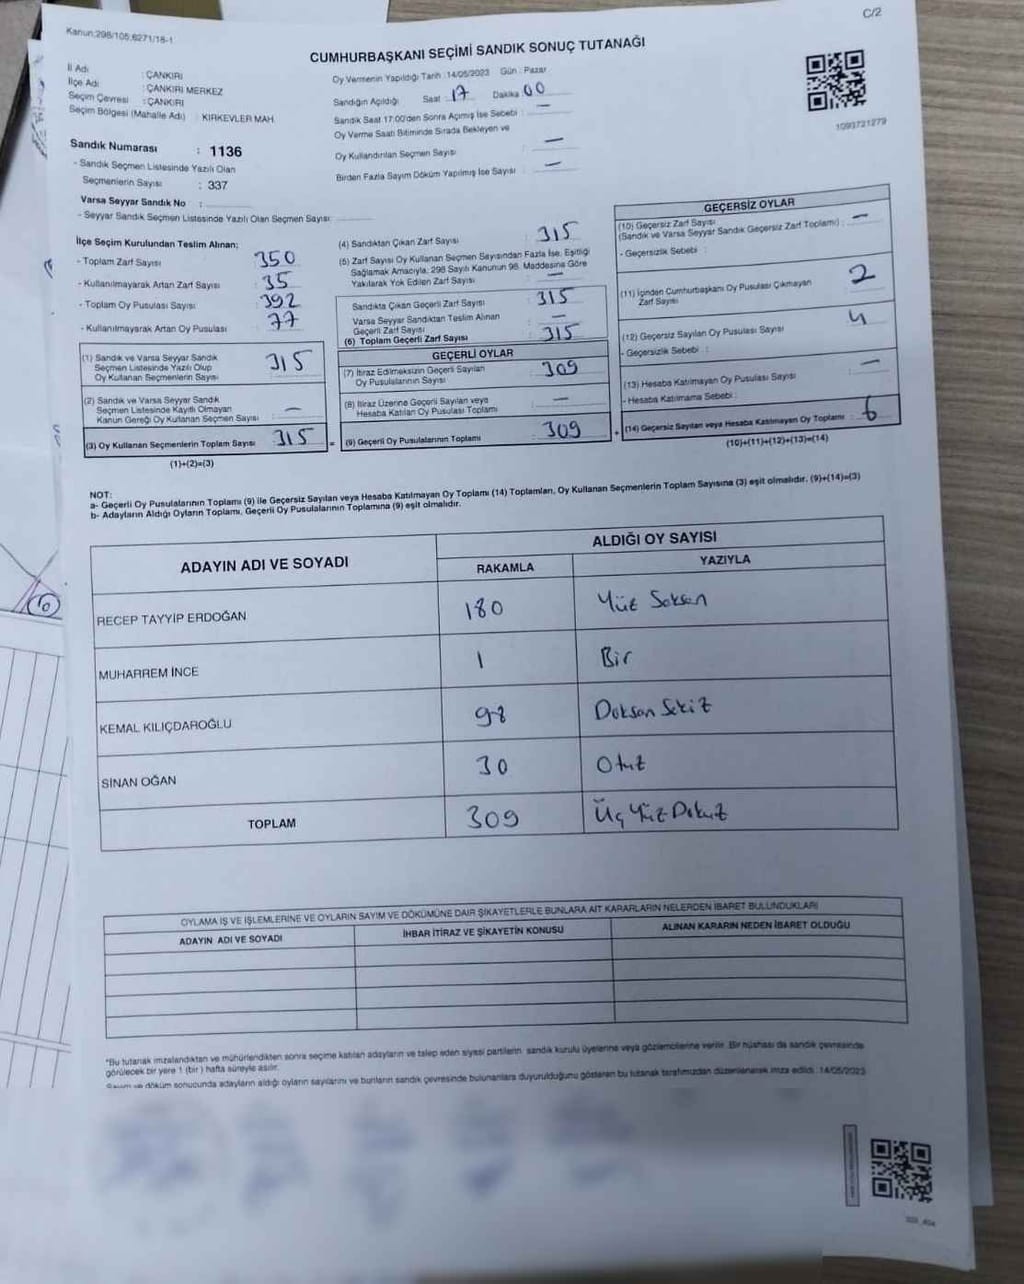 Kanun:298/105,6271/18-1
C/2
CUMHURBAŞKANI SEÇİMİ SANDIK SONUÇ TUTANAĞI
İl Adı : ÇANKIRI
İlçe Adı : ÇANKIRI MERKEZ
Seçim Çevresi : ÇANKIRI
Seçim Bölgesi (Mahalle Adı) : KIRKEVLER MAH.
Sandık Numarası : 1136
- Sandık Seçmen Listesinde Yazılı Olan
Seçmenlerin Sayısı : 337
Varsa Seyyar Sandık No :
- Seyyar Sandık Seçmen Listesinde Yazılı Olan Seçmen Sayısı:
Oy Vermenin Yapıldığı Tarih : 14/05/2023 Gün : Pazar
Sandığın Açıldığı Saat : 17 Dakika 00
Sandık Saat 17:00'den Sonra Açımış İse Sebebi : —
Oy Verme Saati Bitiminde Sırada Bekleyen ve
Oy Kullandırılan Seçmen Sayısı : —
Birden Fazla Sayım Döküm Yapılmış İse Sayısı : —
1093721279
İlçe Seçim Kurulundan Teslim Alınan;
- Toplam Zarf Sayısı 350
- Kullanılmayarak Artan Zarf Sayısı 35
- Toplam Oy Pusulası Sayısı 392
- Kullanılmayarak Artan Oy Pusulası 77
(1) Sandık ve Varsa Seyyar Sandık
Seçmen Listesinde Yazılı Olup
Oy Kullanan Seçmenlerin Sayısı 315
(2) Sandık ve Varsa Seyyar Sandık
Seçmen Listesinde Kayıtlı Olmayan
Kanun Gereği Oy Kullanan Seçmen Sayısı —
(3) Oy Kullanan Seçmenlerin Toplam Sayısı 315
(1)+(2)=(3)
(4) Sandıktan Çıkan Zarf Sayısı : 315
(5) Zarf Sayısı Oy Kullanan Seçmen Sayısından Fazla İse, Eşitliği
Sağlamak Amacıyla, 298 Sayılı Kanunun 98. Maddesine Göre
Yakılarak Yok Edilen Zarf Sayısı : —
Sandıkta Çıkan Geçerli Zarf Sayısı : 315
Varsa Seyyar Sandıktan Teslim Alınan
Geçerli Zarf Sayısı : —
(6) Toplam Geçerli Zarf Sayısı : 315
GEÇERLİ OYLAR
(7) İtiraz Edilmeksizin Geçerli Sayılan
Oy Pusulalarının Sayısı : 309
(8) İtiraz Üzerine Geçerli Sayılan veya
Hesaba Katılan Oy Pusulası Toplamı : —
= (9) Geçerli Oy Pusulalarının Toplamı : 309
GEÇERSİZ OYLAR
(10) Geçersiz Zarf Sayısı
(Sandık ve Varsa Seyyar Sandık Geçersiz Zarf Toplamı) : —
- Geçersizlik Sebebi :
(11) İçinden Cumhurbaşkanı Oy Pusulası Çıkmayan
Zarf Sayısı 2
(12) Geçersiz Sayılan Oy Pusulası Sayısı 4
- Geçersizlik Sebebi :
(13) Hesaba Katılmayan Oy Pusulası Sayısı —
- Hesaba Katılmama Sebebi :
+ (14) Geçersiz Sayılan veya Hesaba Katılmayan Oy Toplamı : 6
(10)+(11)+(12)+(13)=(14)
NOT:
a- Geçerli Oy Pusulalarının Toplamı (9) ile Geçersiz Sayılan veya Hesaba Katılmayan Oy Toplamı (14) Toplamları, Oy Kullanan Seçmenlerin Toplam Sayısına (3) eşit olmalıdır. (9)+(14)=(3)
b- Adayların Aldığı Oyların Toplamı, Geçerli Oy Pusulalarının Toplamına (9) eşit olmalıdır.
ADAYIN ADI VE SOYADI ALDIĞI OY SAYISI
RAKAMLA YAZIYLA
RECEP TAYYİP ERDOĞAN 180 Yüz Seksen
MUHARREM İNCE 1 Bir
KEMAL KILIÇDAROĞLU 98 Doksan Sekiz
SİNAN OĞAN 30 Otuz
TOPLAM 309 Üç Yüz Dokuz
OYLAMA İŞ VE İŞLEMLERİNE VE OYLARIN SAYIM VE DÖKÜMÜNE DAİR ŞİKAYETLERLE BUNLARA AİT KARARLARIN NELERDEN İBARET BULUNDUKLARI
ADAYIN ADI VE SOYADI İHBAR İTİRAZ VE ŞİKAYETİN KONUSU ALINAN KARARIN NEDEN İBARET OLDUĞU
*Bu tutanak imzalandıktan ve mühürlendikten sonra seçime katılan adayların ve talep eden siyasi partilerin sandık kurulu üyelerine veya gözlemcilerine verilir. Bir nüshası da sandık çevresinde
görülecek bir yere 1 (bir) hafta süreyle asılır.
Sayım ve döküm sonucunda adayların aldığı oyların sayılarını ve bunların sandık çevresinde bulunanlara duyurulduğunu gösteren bu tutanak tarafımızdan düzenlenerek imza edildi. 14/05/2023